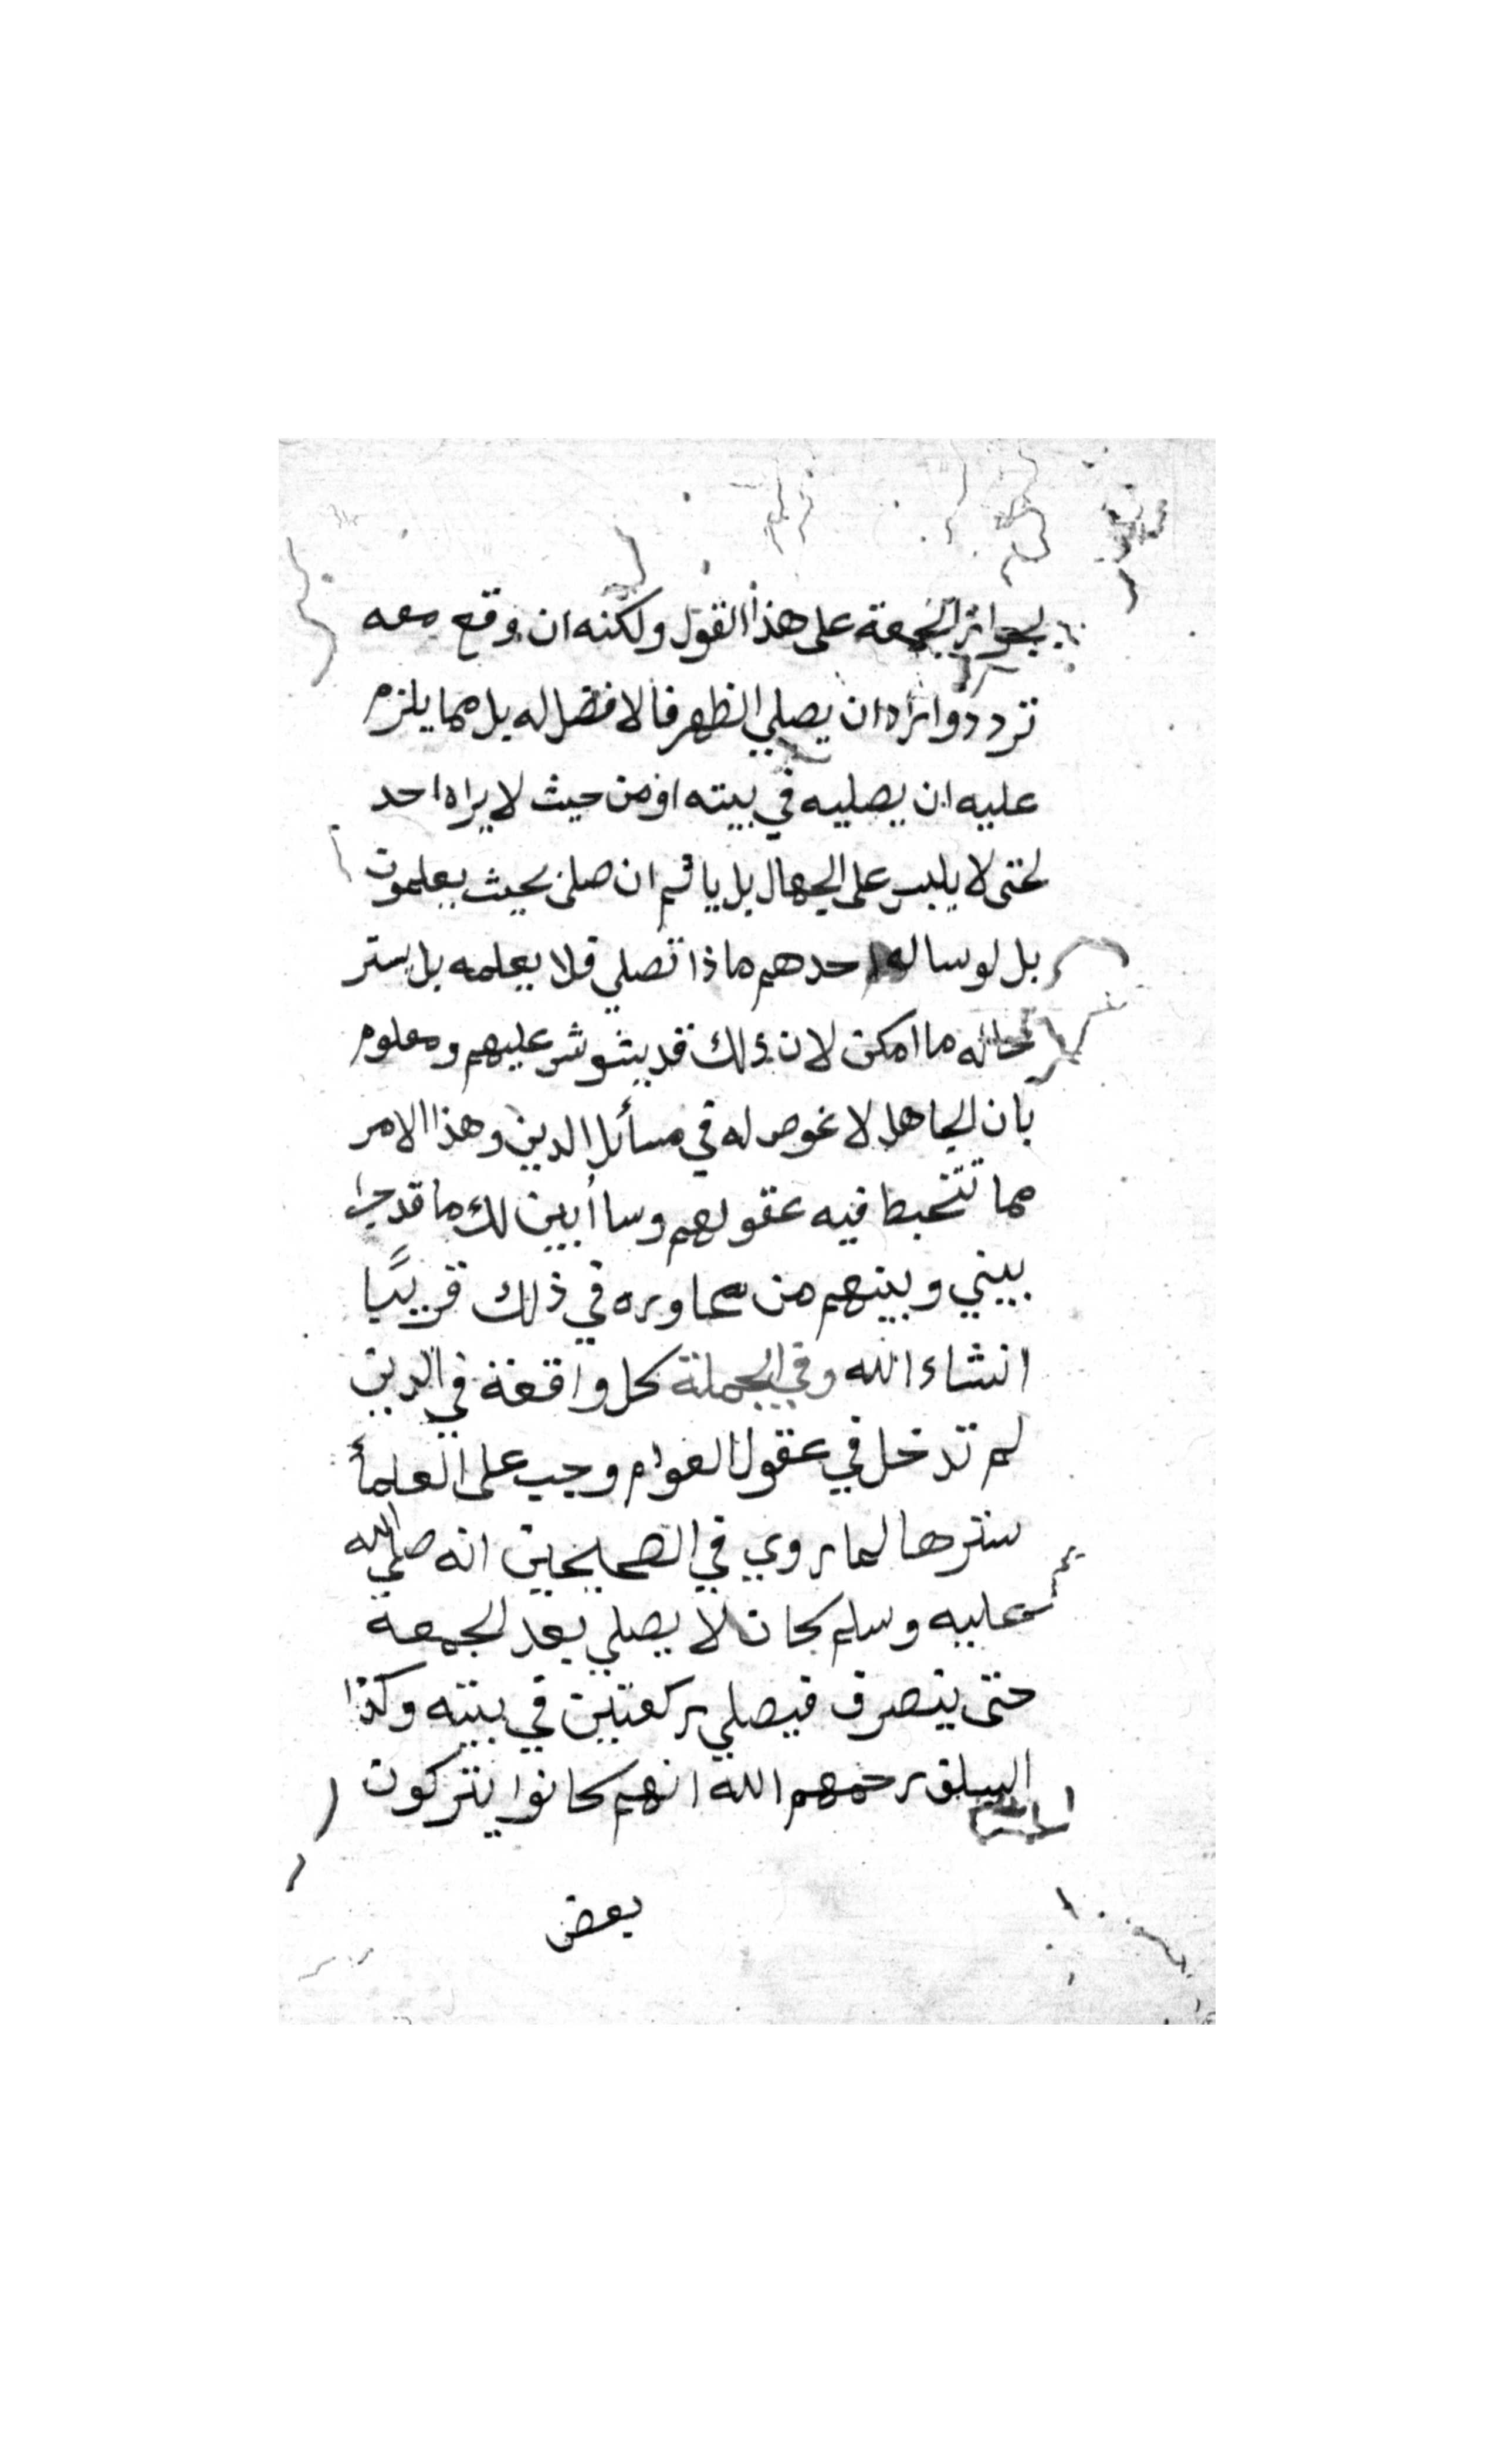 بجواز الجمعة على هذا القول ولكنه ان وقع معه
تردد واراد ان يصلي الظهر فالافضل له بل مما يلزم
عليه ان يصليه في بيته او من حيث لا يراه احد
لحتى لا يلبس على الجهال بل يأثم ان صلى بحيث يعلمون
بل لو ساله احدهم ماذا تصلي فلا يعلمه بل ستر
حاله ما امكن لان ذلك قد يشوش عليهم ومعلوم
بان الجاهل لا غوص له في مسائل الدين وهذا الامر
مما تتخبط فيه عقولهم وسأابين لك ما قد جرا
بيني وبينهم من محاوره في ذلك قريبًا
انشاء الله وفي الجملة كل واقعة في الدين
لم تدخل في عقول العوام وجب على العلمأ
سترها لما روي في الصحيحين انه صلى الله
عليه وسلم كان لا يصلي بعد الجمعة
حتى ينصرف فيصلي ركعتين في بيته وكذا
السلف رحمهم الله انهم كانوا يتركون
بعض